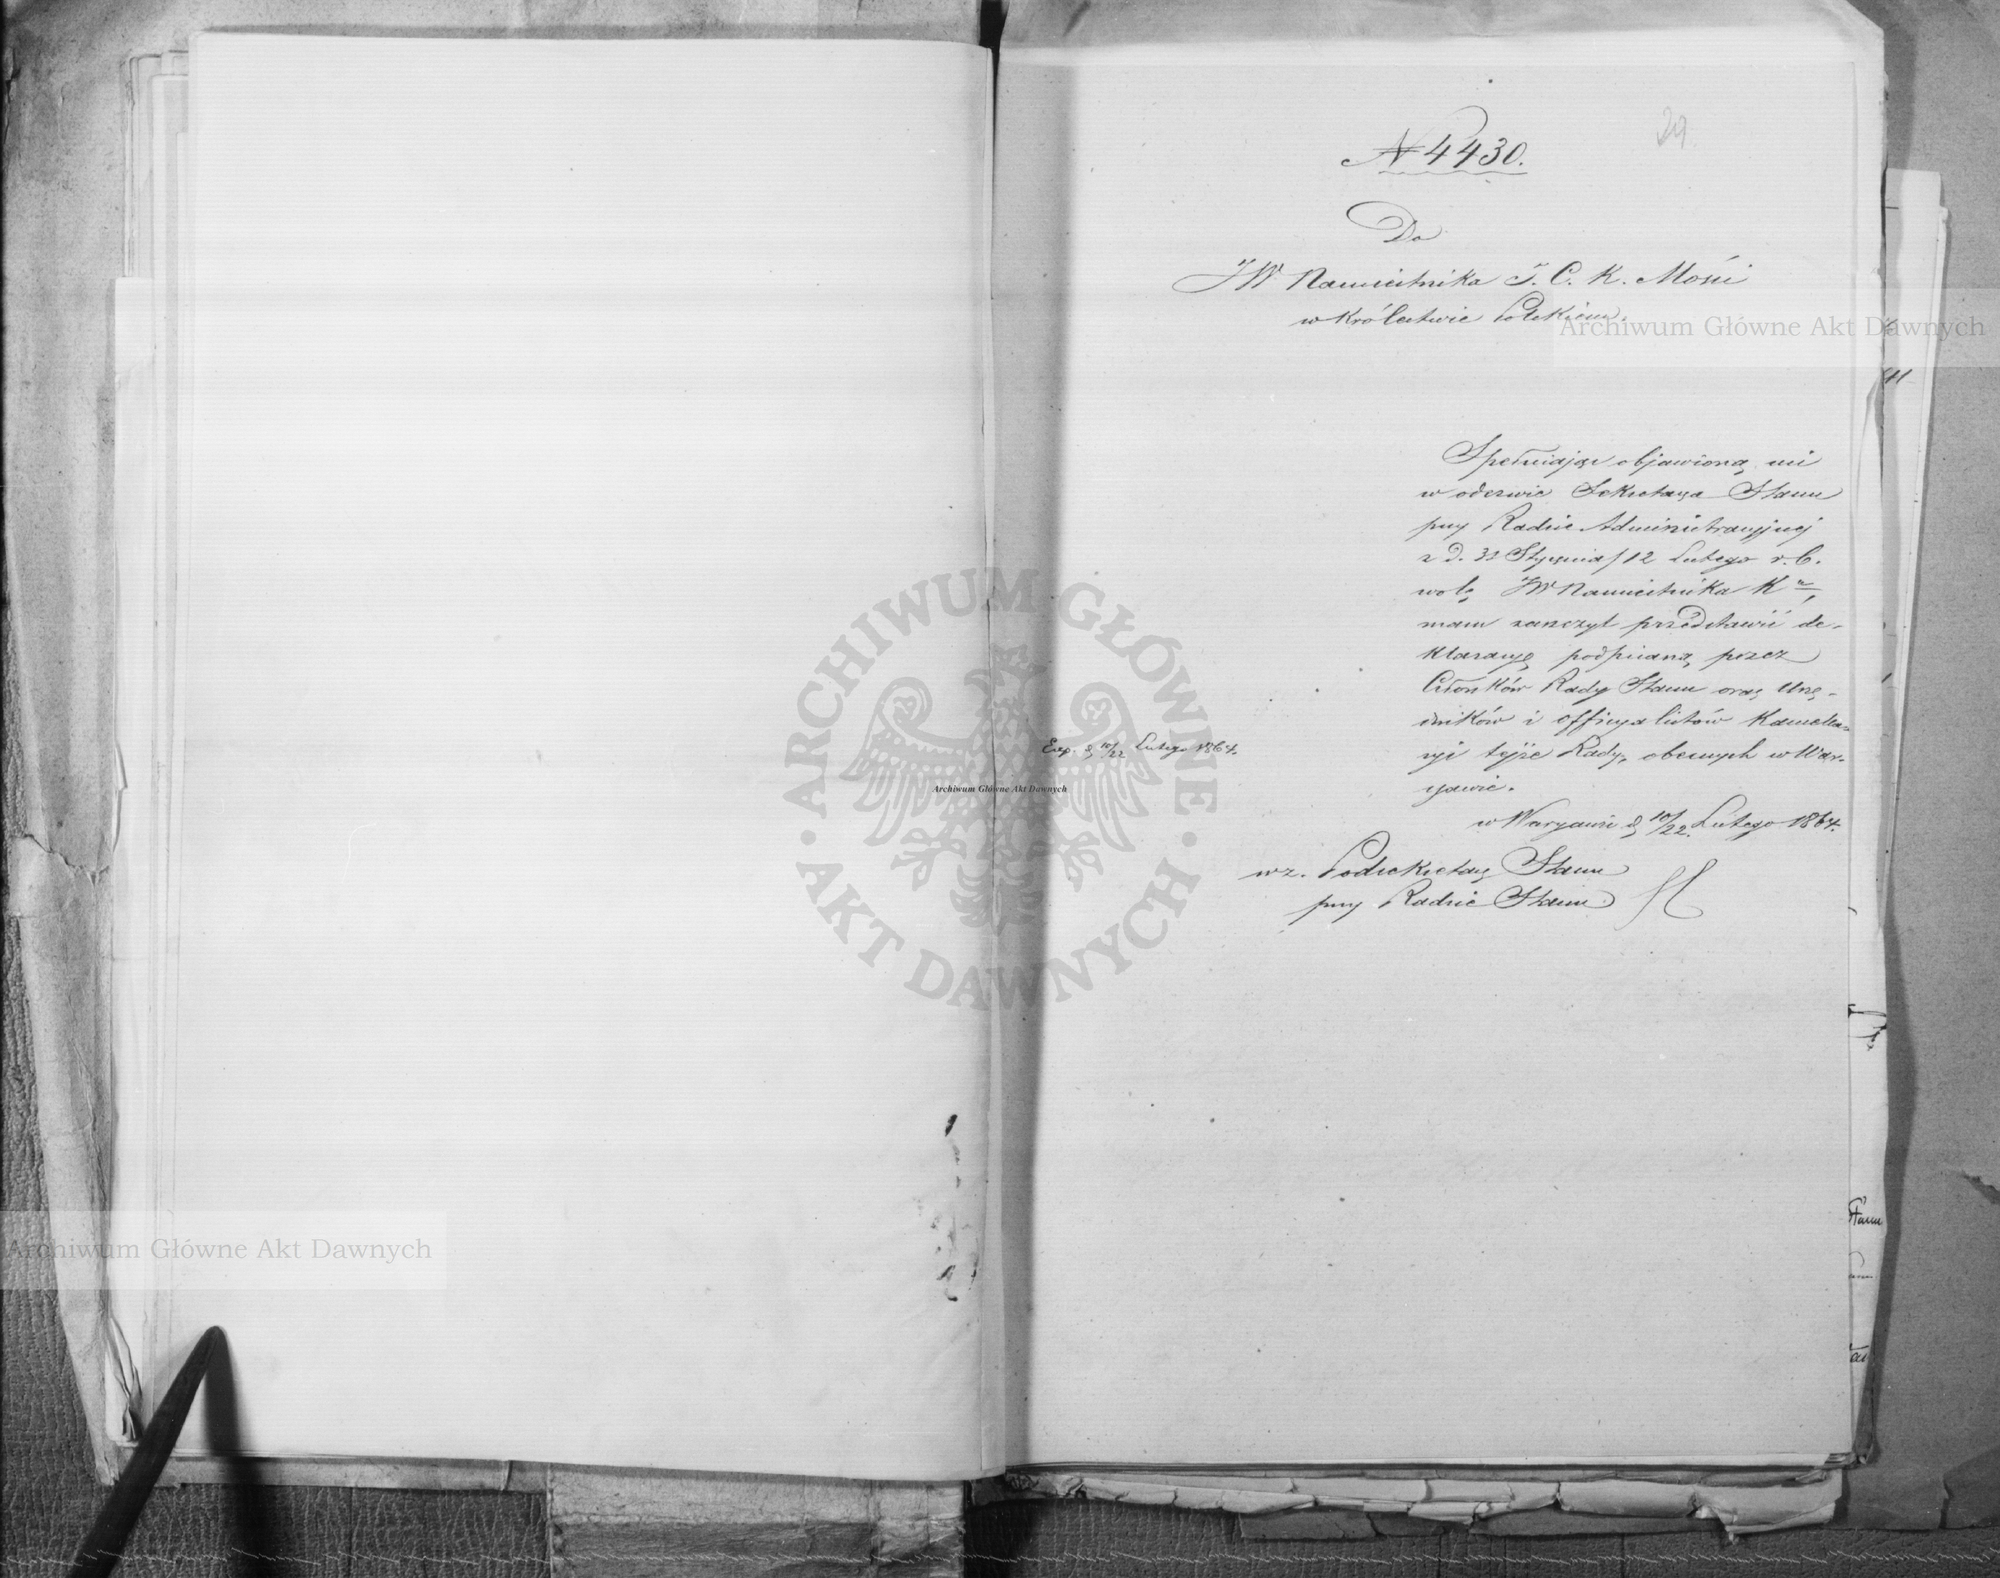 29.
№ 4430.
Do
JW Namiestnika J. C. K. Mości
w Królestwie Polskiem.
Spełniając objawioną mi
w odezwie Sekretarza Stanu
przy Radzie Administracyjnej
z d. 31 Stycznia/12 Lutego r. b.
wolę JW Namiestnika Kr,
mam zaszczyt przedstawić de-
klaracyę podpisaną przez
Członków Rady Stanu oraz Urzę-
dników i officyalistów Kancela-
ryi tejże Rady, obecnych w War-
szawie.
w Warszawie d 10/22 Lutego 1864.
Exp. d 10/22 Lutego 1864.
wz. Podsekretarz Stanu
przy Radzie Stanu
Archiwum Główne Akt Dawnych
Archiwum Główne Akt Dawnych
Archiwum Główne Akt Dawnych
ARCHIWUM GŁÓWNE · AKT DAWNYCH ·